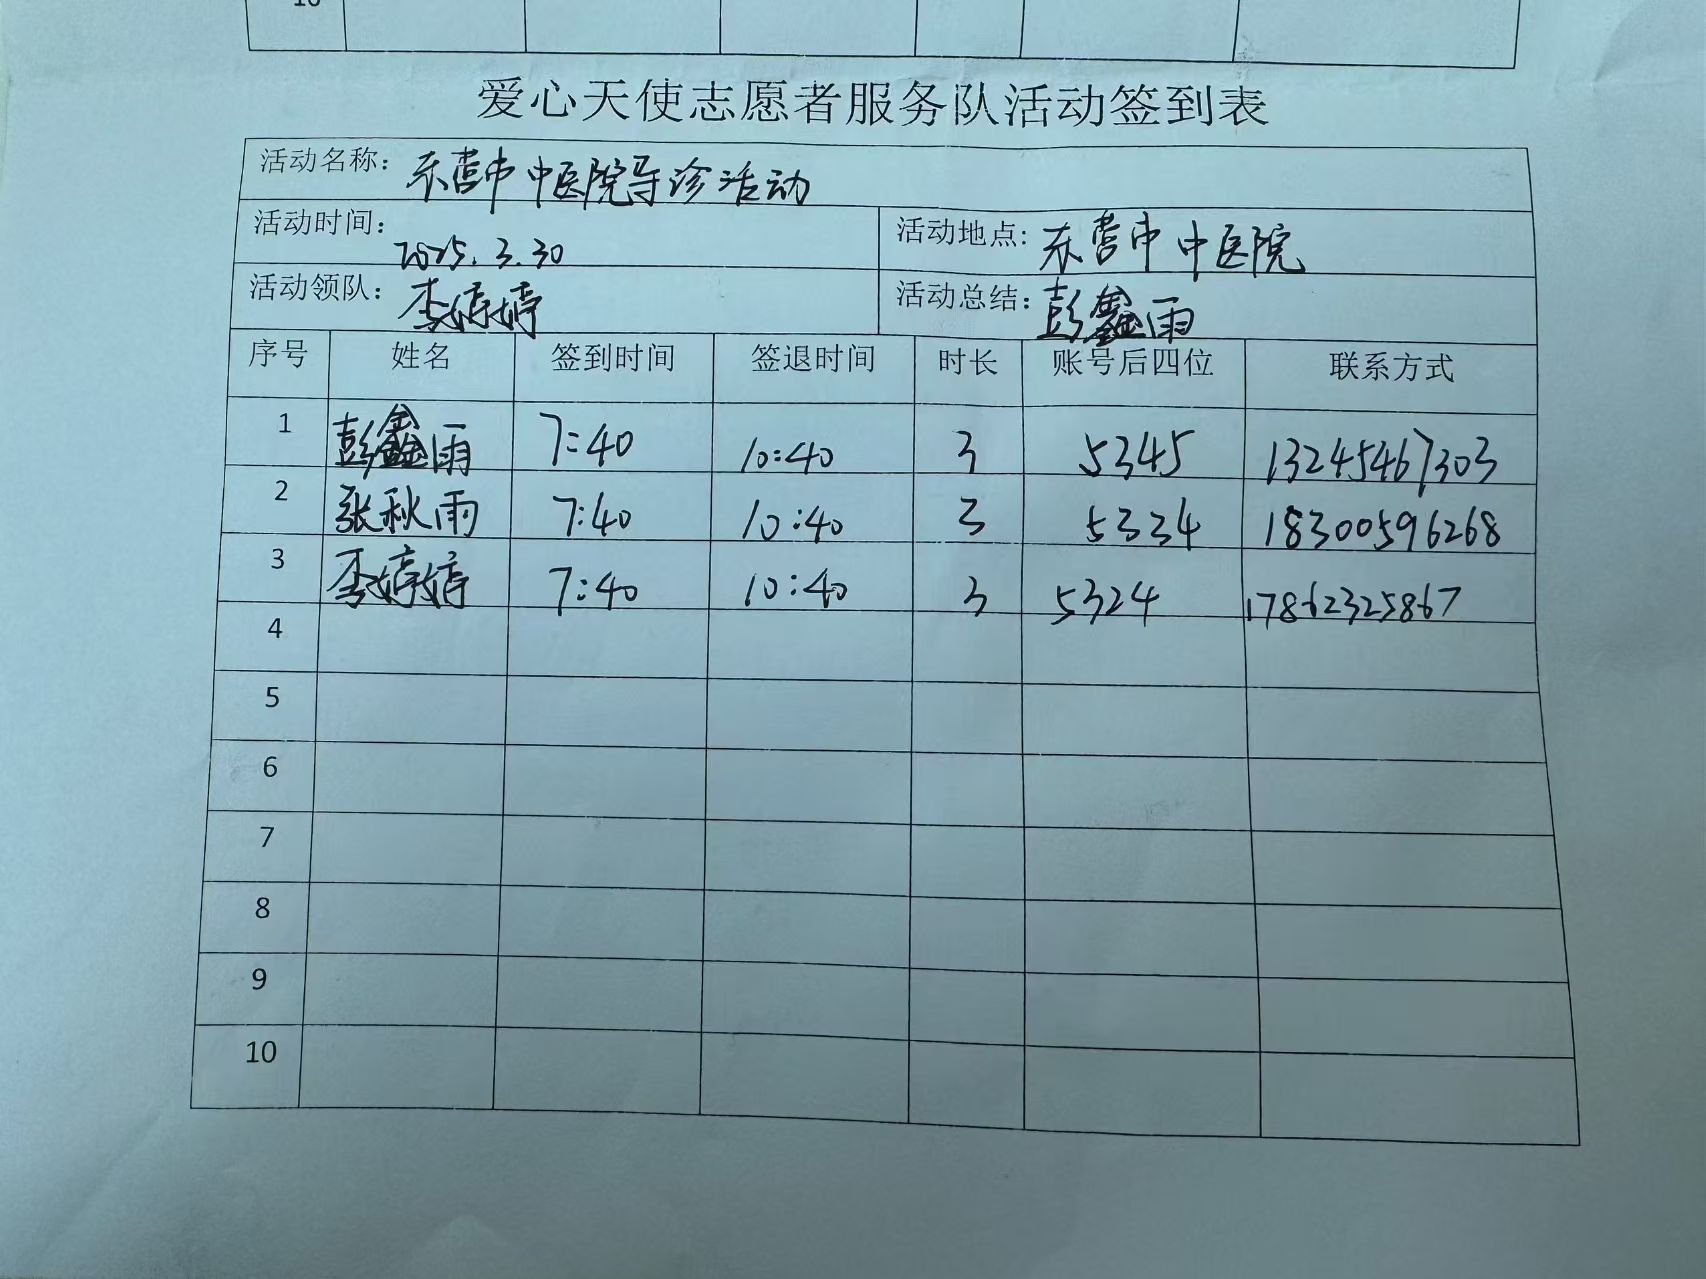 10
爱心天使志愿者服务队活动签到表
活动名称: 东营市中医院导诊活动
活动时间: 2025.3.30 活动地点: 东营市中医院
活动领队: 李婷婷 活动总结: 彭鑫雨
序号 姓名 签到时间 签退时间 时长 账号后四位 联系方式
1 彭鑫雨 7:40 10:40 3 5345 13245467303
2 张秋雨 7:40 10:40 3 5334 18300596268
3 李婷婷 7:40 10:40 3 5324 17862325867
4
5
6
7
8
9
10